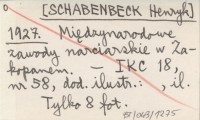 [SCHABENBECK Henryk]
1927. Międzynarodowe
zawody narciarskie w Za-
kopanem. - IKC 18,
nr 58, dod. ilustr.: , il.
Tylko 8 fot.